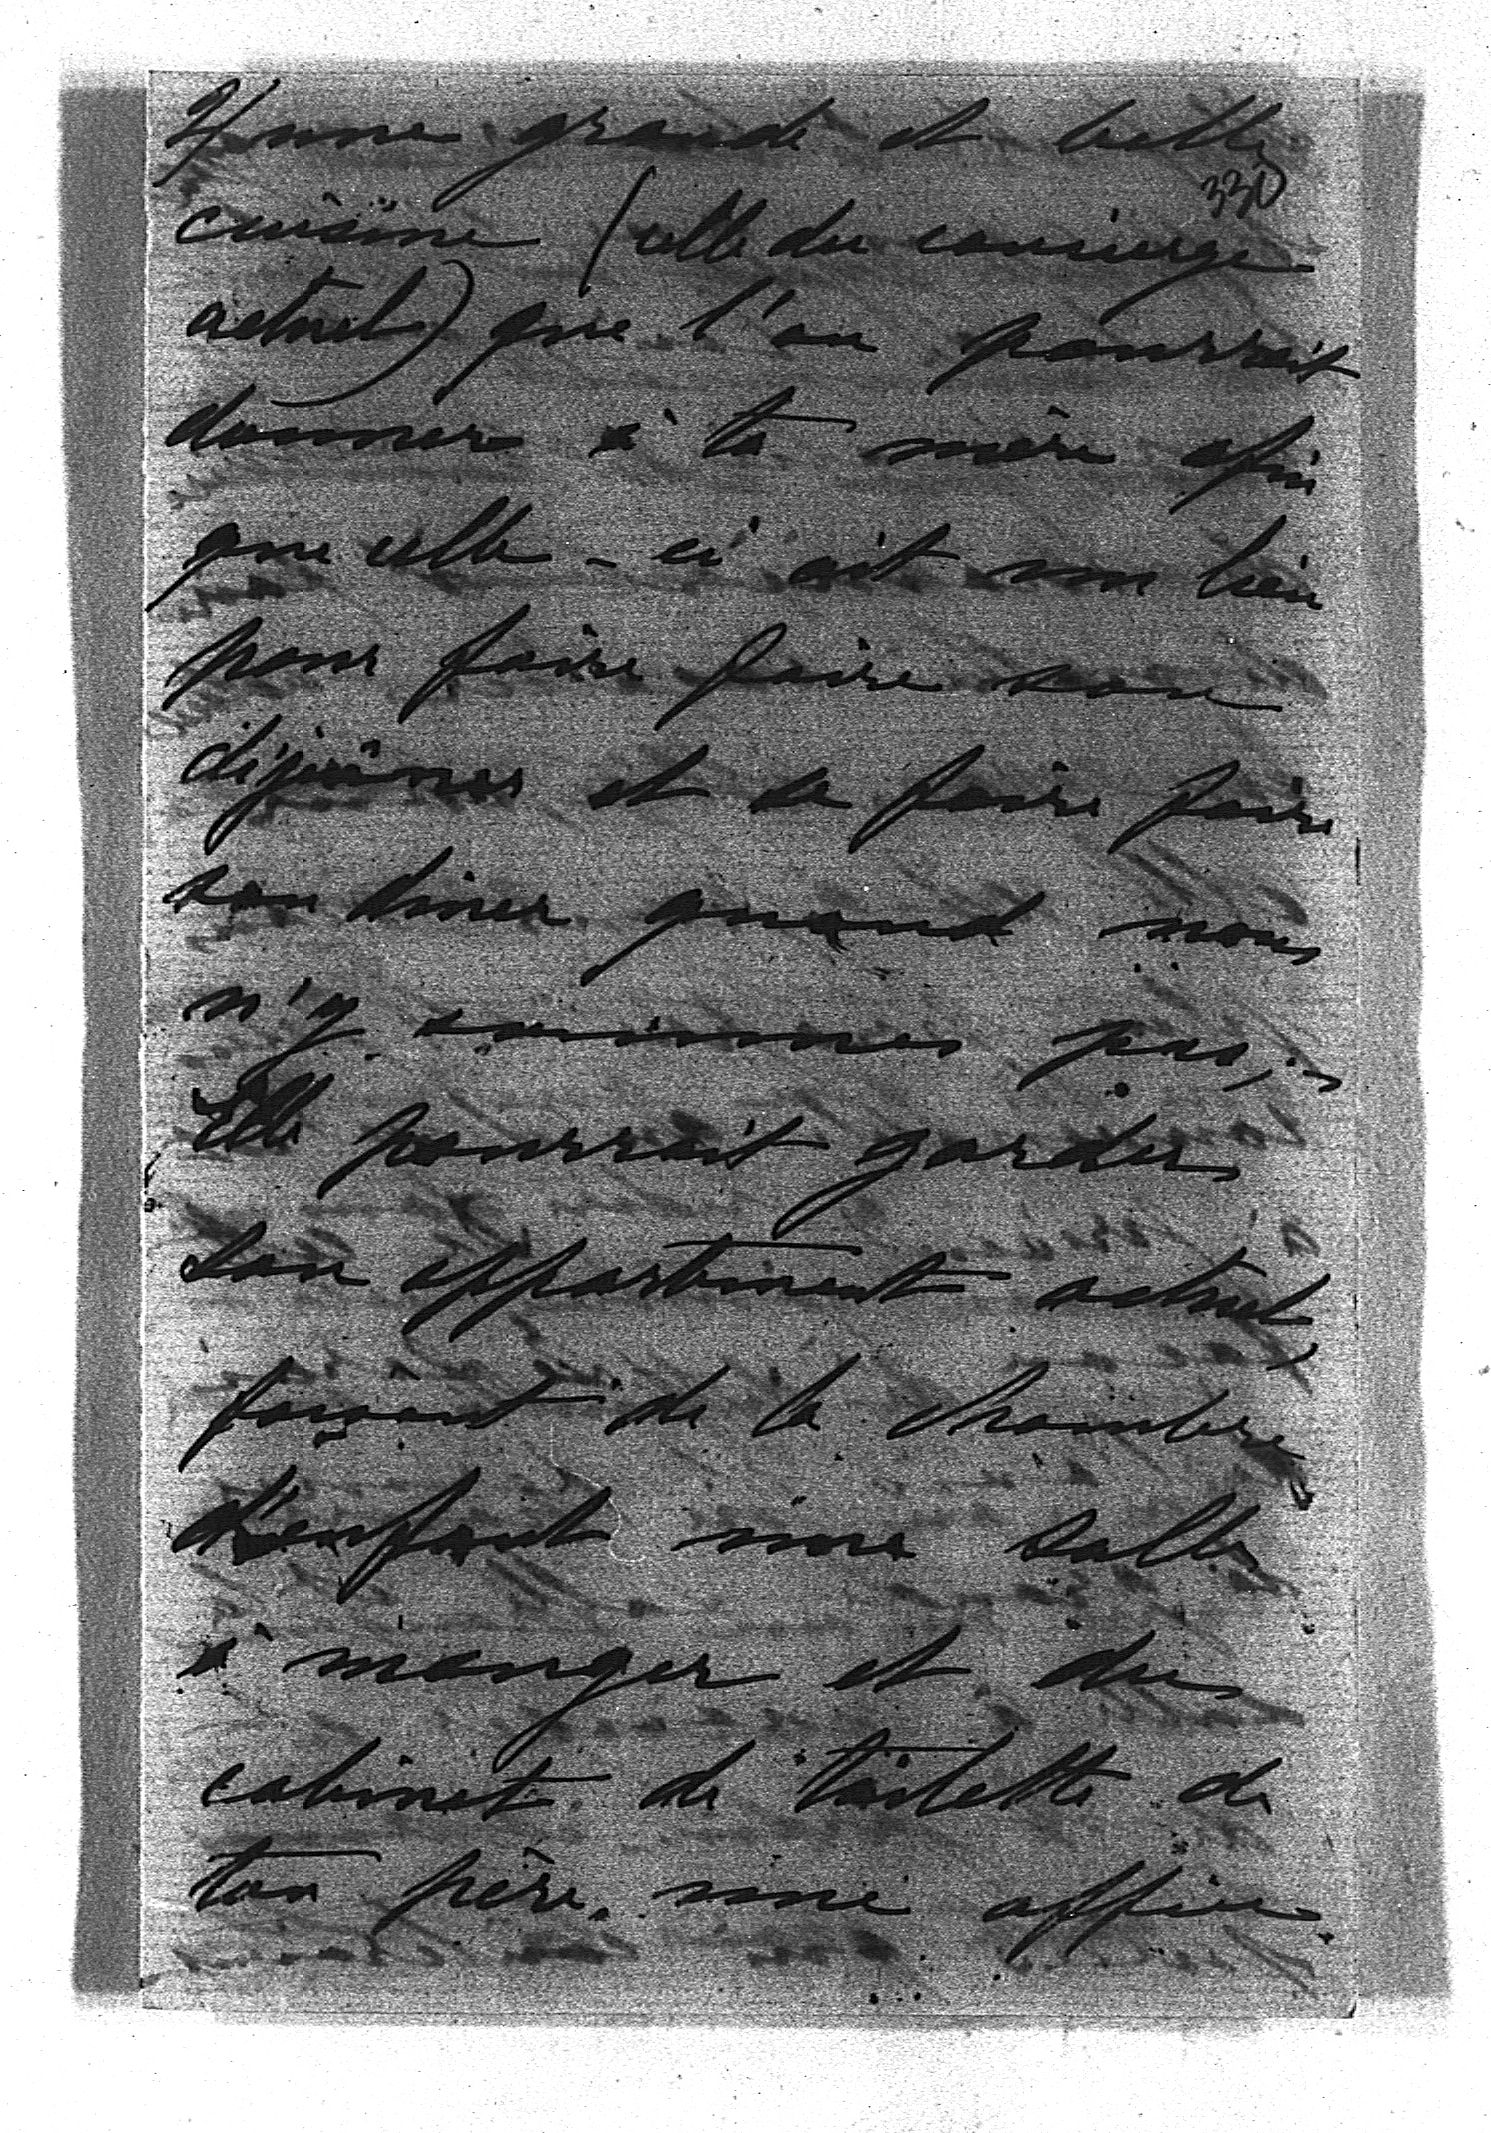 2/ une grande et belle
330
cuisine (celle du concierge
actuel) que l'on pourrait
donner à ta mère afin
que celle-ci ait un lieu
pour faire faire son
déjeûner et se faire faire
son diner quand nous
n'y sommes pas;
Elle pourrait garder
son appartement actuel,
faisant de la chambre
d'enfant une salle
à manger et du
cabinet de toilette de
ton père, une office